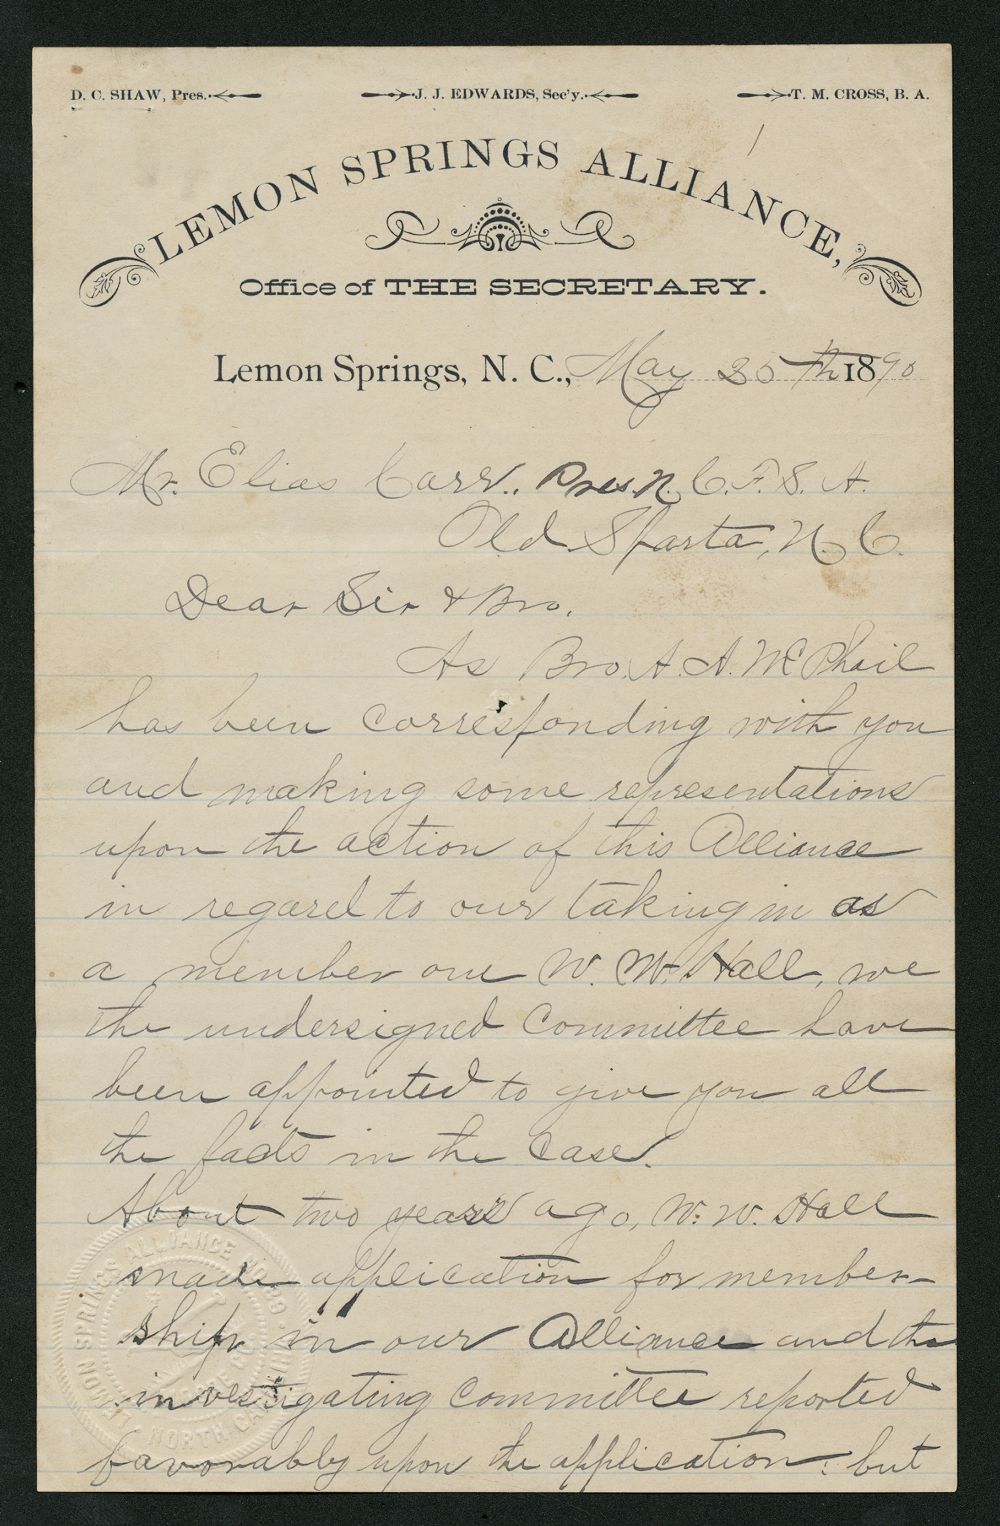 D. C. SHAW, Pres. J. J. EDWARDS, Sec'y. T. M. CROSS, B. A.
LEMON SPRINGS ALLIANCE,
Office of THE SECRETARY.
Lemon Springs, N. C., May 25th 1890
Mr. Elias Carr., Pres. N. C. F. S. A.
Old Sparta, N. C.
Dear Sir & Bro.
As Bro. A. A. McPhail
has been corresponding with you
and making some representations
upon the action of this Alliance
in regard to our taking in as
a member one W. W. Hall, we
the undersigned Committee have
been appointed to give you all
the facts in the case.
About two years ago, W. W. Hall
made application for member-
ship in our Alliance and the
investigating committee reported
favorably upon the application: but
LEMON SPRINGS ALLIANCE NORTH CAROLINA